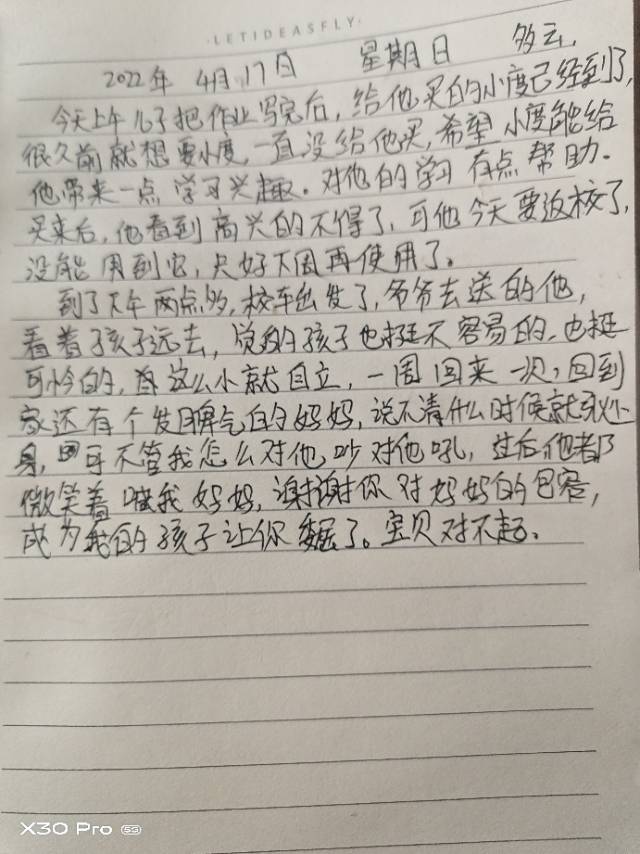 LETIDEASFLY
2022年 4月17日 星期日 多云.
今天上午儿子把作业写完后,给他买的小度已经到了,
很久前就想要小度,一直没给他买,希望小度能给
他带来一点学习兴趣.对他的学习有点帮助.
买来后,他看到高兴的不得了,可他今天要返校了,
没能用到它,只好下周再使用了。
到了下午两点多,校车出发了,爷爷去送的他,
看着孩子远去,觉的孩子也挺不容易的.也挺
可怜的,这么小就自立,一周回来一次,回到
家还有个发脾气的妈妈,说不清什么时候就
身,可不管我怎么对他吵对他吼,过后他都
微笑着喊我妈妈,谢谢你对妈妈的包容,
成为我的孩子让你委屈了。宝贝对不起.
X30 Pro 5G